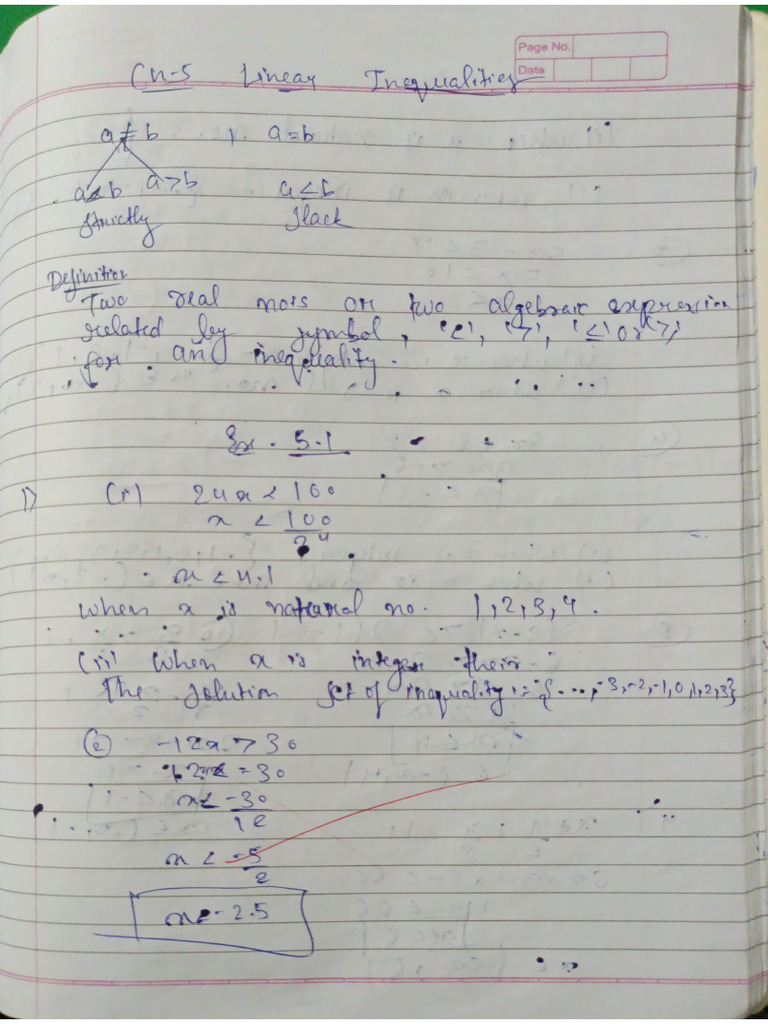 Page No.
Date
Ch-5 Linear Inequalities
a ≠ b , a = b
a < b a > b a ≤ b
Strictly Slack
Definition
Two real nois or two algebraic expression
related by symbol, '<', '>', '≤' or '≥'
for an inequality.
Ex. 5.1
1) (i) 24x < 100
x < 100
24
x < 4.1
when x is natural no. 1, 2, 3, 4.
(ii) when x is integer their
The solution set of inequality := {..., -3, -2, -1, 0, 1, 2, 3}
(2) -12x > 30
= 30
x < -30
12
x < -5
2
x < -2.5